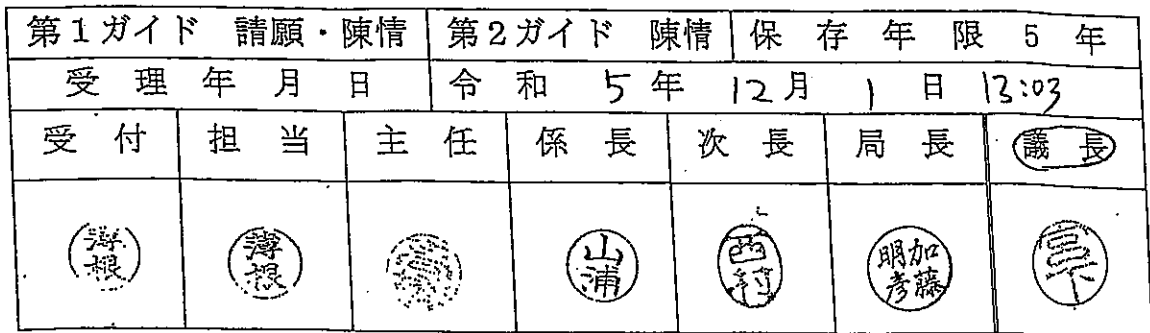 第1ガイド 請願・陳情 第2ガイド 陳情 保存年限 5年
受理年月日 令和 5年 12月 1日 13:03
受付 担当 主任 係長 次長 局長 議長
薄根 薄根 山浦 西村 加藤明彦 宮下